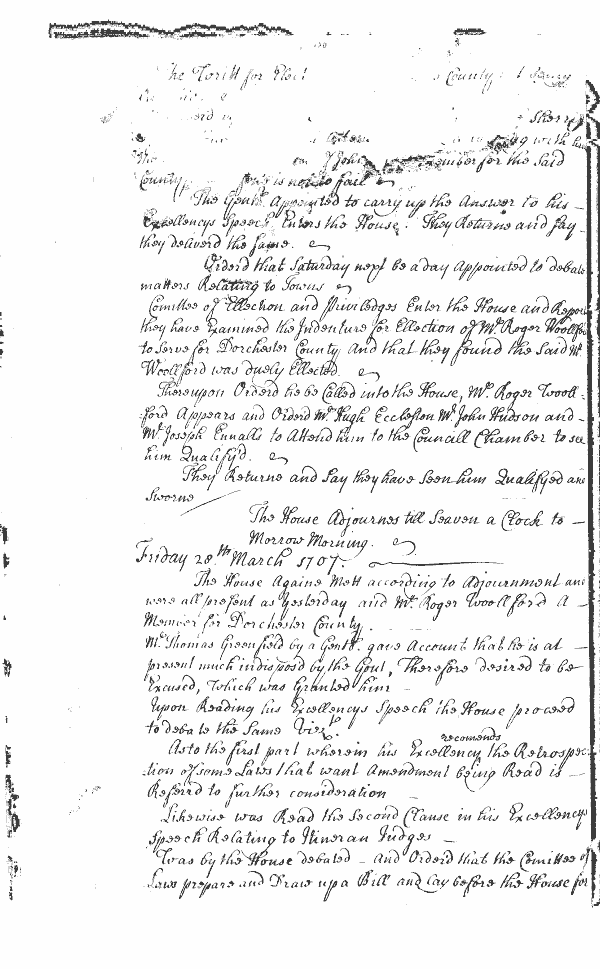 The Writt for Elect County
Sherr
with
Member for the Said
County is not to fail
The Gentn. Appointed to carry up the Answer to his
Excellencys Speech Enters the House. They Returne and say
they deliverd the same.
Orderd that Saturday next be a day Appointed to debate
matters Relating to Towns
Comittee of Ellection and Priviledges Enter the House and Report
they have Examined the Indenture for Ellection of Mr. Roger Woollford
to serve for Dorchester County And that they found the said Mr.
Woollford was duely Ellected.
Thereupon Orderd he be Called into the House, Mr. Roger Wooll-
ford Appears and Orderd Mr. Hugh Eccleston Mr. John Hudson and
Mr. Joseph Ennalls to Attend him to the Councill Chamber to see
him Qualifyd.
They Returne and Say they have Seen him Qualifyed and
Sworne
The House Adjournes till Seaven a Clock to
Morrow Morning.
Friday 28th March 1707.
The House Againe Mett according to Adjournment and
were all present as Yesterday and Mr. Roger Woollford A
Member for Dorchester County.
Mr. Thomas Greenfield by a Gentn. gave Account that he is at
present much indisposd by the Gout, Therefore desired to be
Excused, Which was Granted him
Upon Reading his Excellencys Speech the House proceed
to debate the Same Vizt.
As to the first part wherein his Excellency recomends the Retrospec-
tion of some Laws that want Amendment being Read is
Referrd to further consideration
Likewise was Read the Second Clause in his Excellencys
Speech Relating to Itineran Judges
Twas by the House debated - And Orderd that the Comittee of
Laws prepare and Draw up a Bill and Lay before the House for